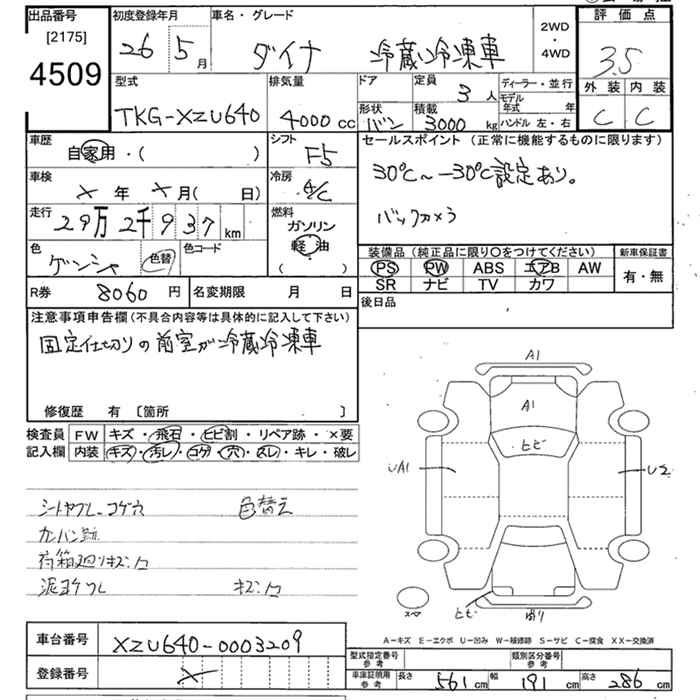 出品番号
[2175]
4509
初度登録年月
26 5月
車名・グレード
ダイナ 冷蔵冷凍車
2WD
・
4WD
評価点
3.5
外装 内装
C C
型式
TKG-XZU640
排気量
4000cc
ドア
定員
3人
ディーラー・並行
モデル年式 年
形状
バン
積載
3000kg
ハンドル 左・右
車歴
自家用・( )
シフト
F5
車検
× 年 × 月( 日)
冷房
A/C
走行
29万2千937km
燃料
ガソリン
軽油
( )
色
ゲンシャ
色替
色コード
R券 8060円
名変期限 月 日
セールスポイント(正常に機能するものに限ります)
30℃~-30℃設定あり。
バックカメラ
装備品(純正品に限り○をつけてください)
PS PW ABS エアB AW
SR ナビ TV カワ
新車保証書
有・無
後日品
注意事項申告欄(不具合内容等は具体的に記入して下さい)
固定仕切りの前室が冷蔵冷凍車
修復歴 有 〔箇所 〕
検査員記入欄
FW キズ・飛石・ヒビ割・リペア跡・×要
内装 キズ・汚レ・コゲ・穴・スレ・キレ・破レ
シートヤブレ コゲ穴 色替え
カンバン跡
荷箱廻りキズ凹
泥ヨケワレ キズ凹
A1
A1
ヒビ
UA1
U2
スペア
ヒビ
曲り
A-キズ E-エクボ U-凹み W-補修跡 S-サビ C-腐食 XX-交換済
車台番号 XZU640-0003209
登録番号 ×
型式指定番号
参考
類別区分番号
参考
車庫証明用
参考
長さ 561cm 幅 191cm 高さ 286cm